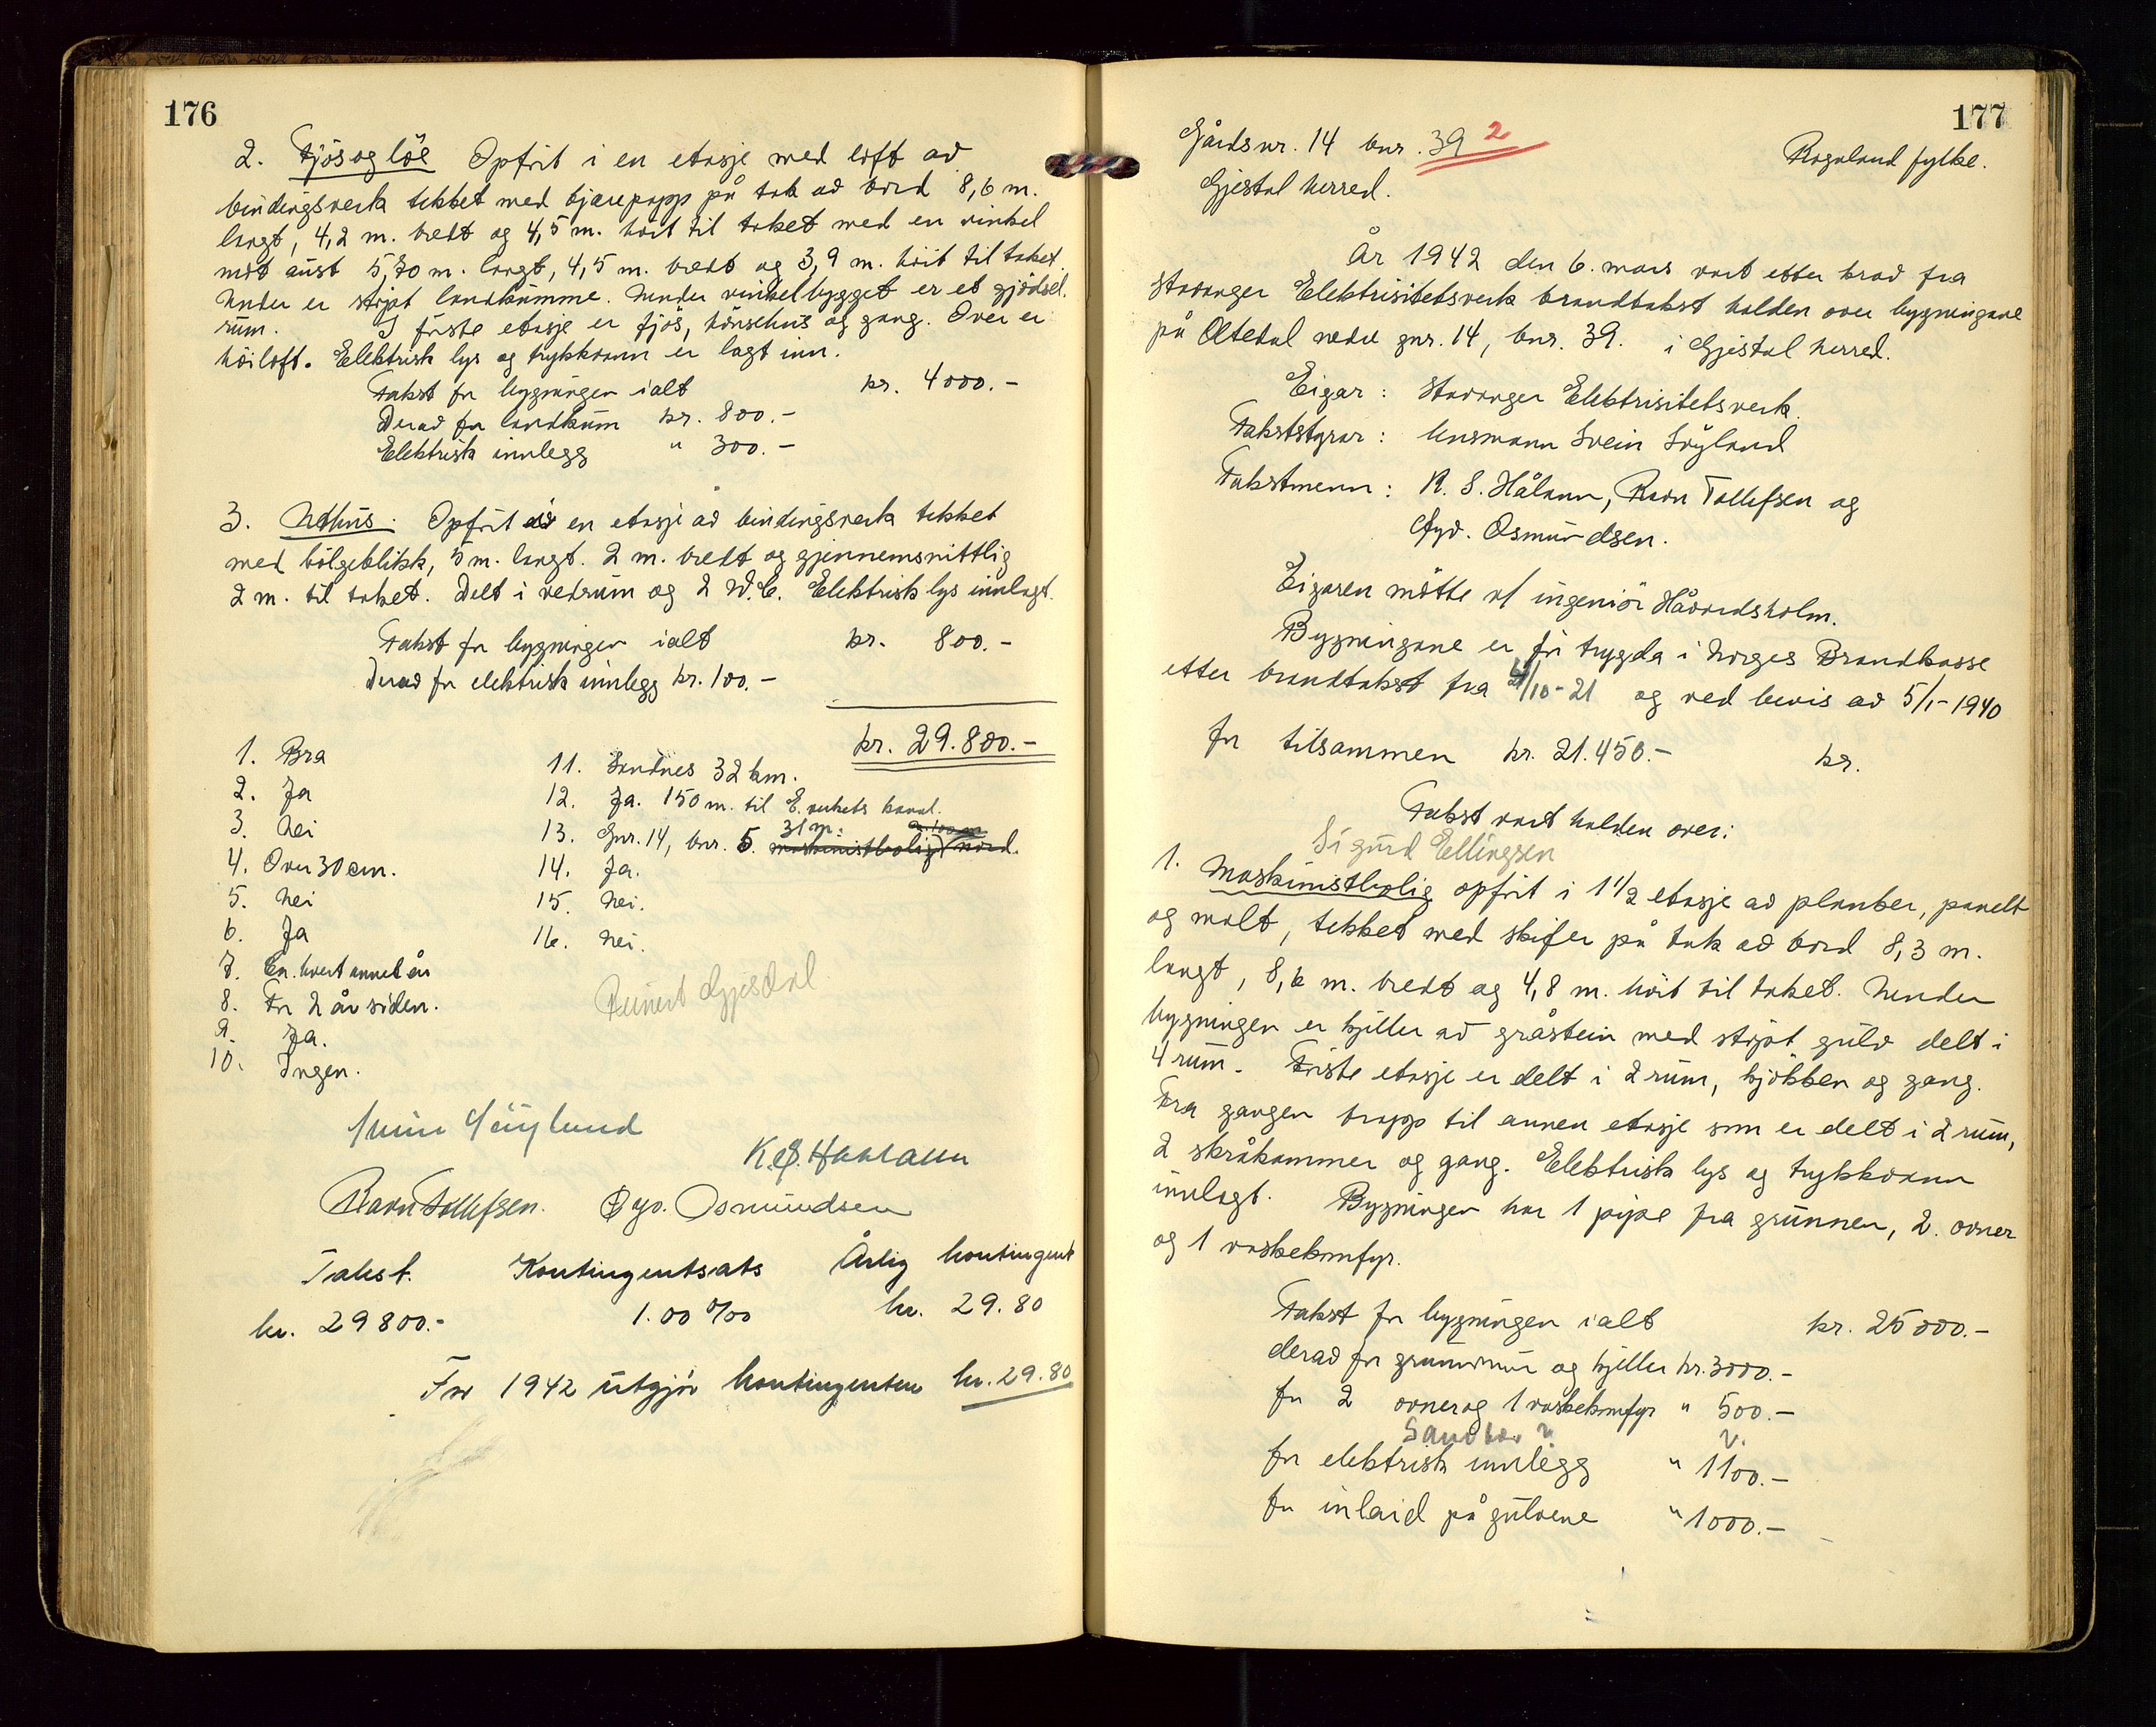 176
2. Fjös og löe Opfört i en etasje med loft av
bindingsverk tekket med tjærepapp på tak av bord 8,6 m.
langt, 4,2 m. bredt og 4,5 m. höit til taket med en vinkel
mot aust 5,70 m. langt, 4,5 m. bredt og 3,9 m. höit til taket.
Under er stöpt landkumme. Under vinkelbygget er et gjödsel-
rum. I förste etasje er fjös, hönsehus og gang. Over er
höiloft. Elektrisk lys og trykkvann er lagt inn.
Takst for bygningen ialt kr. 4000.-
Derav for landkum kr. 800.-
Elektrisk innlegg " 300.-
3. Uthus: Opfört i en etasje av bindingsverk tekket
med bölgeblikk, 5 m. langt. 2 m. bredt og gjennemsnittlig
2 m. til taket. Delt i vedrum og 2 W.C. Elektrisk lys innlagt.
Takst for bygningen ialt kr. 800.-
Derav for elektrisk innlegg kr. 100.-
kr. 29.800.-
1. Bra
2. Ja
3. Nei
4. Over 30 cm.
5. Nei
6. Ja
7. En. hvert annet år
8. For 2 år siden.
9. Ja.
10. Ingen.
11. Sandnes 32 km.
12. Ja. 150 m. til E. verkets kanal.
31 m. a. 100 m
13. Gnr. 14, bnr. 5. maskinistbolig nord.
14. Ja.
15. Nei.
16. Nei.
Reinert Gjesdal
Svein Söyland
K. S. Haaland
Ravn Tollefsen. Gyd. Osmundsen
Takst. Kontingentsats Årlig kontingent
kr. 29800.- 1.00 ‰ kr. 29.80
For 1942 utgjör kontingenten kr. 29.80
177
Gårdsnr. 14 bnr. 39 2
Rogaland fylke.
Gjestal herred.
År 1942 den 6. mars vart etter krav fra
Stavanger Elektrisitetsverk brandtakst halden over bygningane
på Oltedal nedre gnr. 14, bnr. 39. i Gjestal herred.
Eigar: Stavanger Elektrisitetsverk.
Takststyrar: lensmann Svein Söyland
Takstmenn: K. S. Hålann, Ravn Tollefsen og
Gyd. Osmundsen.
Eigaren mötte v/ ingeniör Håvardsholm.
Bygningane er för trygda i Norges Brandkasse
etter brandtakst fra 4/10-21 og ved bevis av 5/1-1940
for tilsammen kr. 21.450.- kr.
Takst vart halden over:
Sigurd Ellingsen
1. Maskinistbolig opfört i 1 1/2 etasje av planker, panelt
og malt, tekket med skifer på tak av bord 8,3 m.
langt, 8,6 m. bredt og 4,8 m. höit til taket. Under
bygningen er kjeller av gråstein med stöpt gulv delt i
4 rum. Förste etasje er delt i 2 rum, kjökken og gang.
Fra gangen trapp til annen etasje som er delt i 2 rum,
2 skråkammer og gang. Elektrisk lys og trykkvann
innlagt. Bygningen har 1 pipe fra grunnen, 2. ovner
og 1 vaskekomfyr.
Takst for bygningen ialt kr. 25000.-
derav for grunnmur og kjeller kr. 3000.-
for 2 ovner og 1 vaskekomfyr " 500.-
for elektrisk innlegg " 1100.-
for inlaid på gulvene " 1000.-